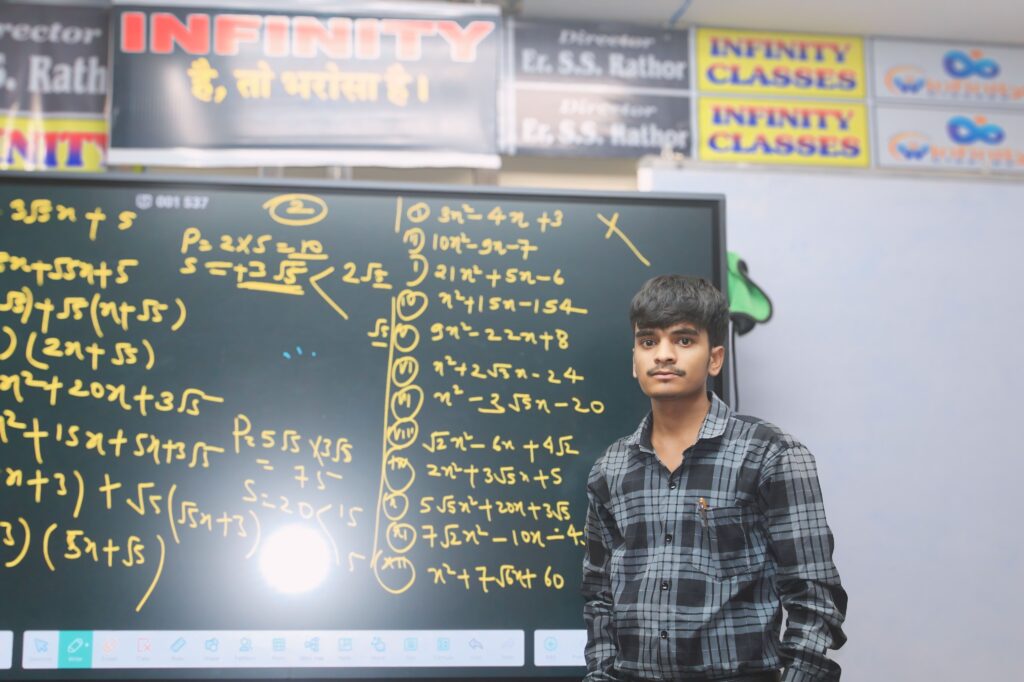 INFINITY
है, तो भरोसा है।
rector
S. Rath
INIT
Director
Er. S.S. Rathor
Director
Er. S.S. Rathor
INFINITY
CLASSES
INFINITY
CLASSES
001 537
3√5x + 5
5x+√5x+5
√5)+√5(x+√5)
)(2x+√5)
x²+20x+3√5
x²+15x+5x+3√5
x+3) + √5(√5x+3)
3)(5x+√5)
②
P = 2×5 = 10
S = +3√5 < 2√5
√5
P = 5√5 × 3√5
= 75
S = 20 < 15
5
① 3x² - 4x + 3
ii) 10x² - 9x - 7
) 21x² + 5x - 6
iv) x² + 15x - 154
v) 9x² - 22x + 8
vi) x² + 2√5x - 24
vii) x² - 3√5x - 20
viii) √2x² - 6x + 4√2
ix) 2x² + 3√5x + 5
x) 5√5x² + 20x + 3√5
xi) 7√2x² - 10x - 4
xii) x² + 7√6x + 60